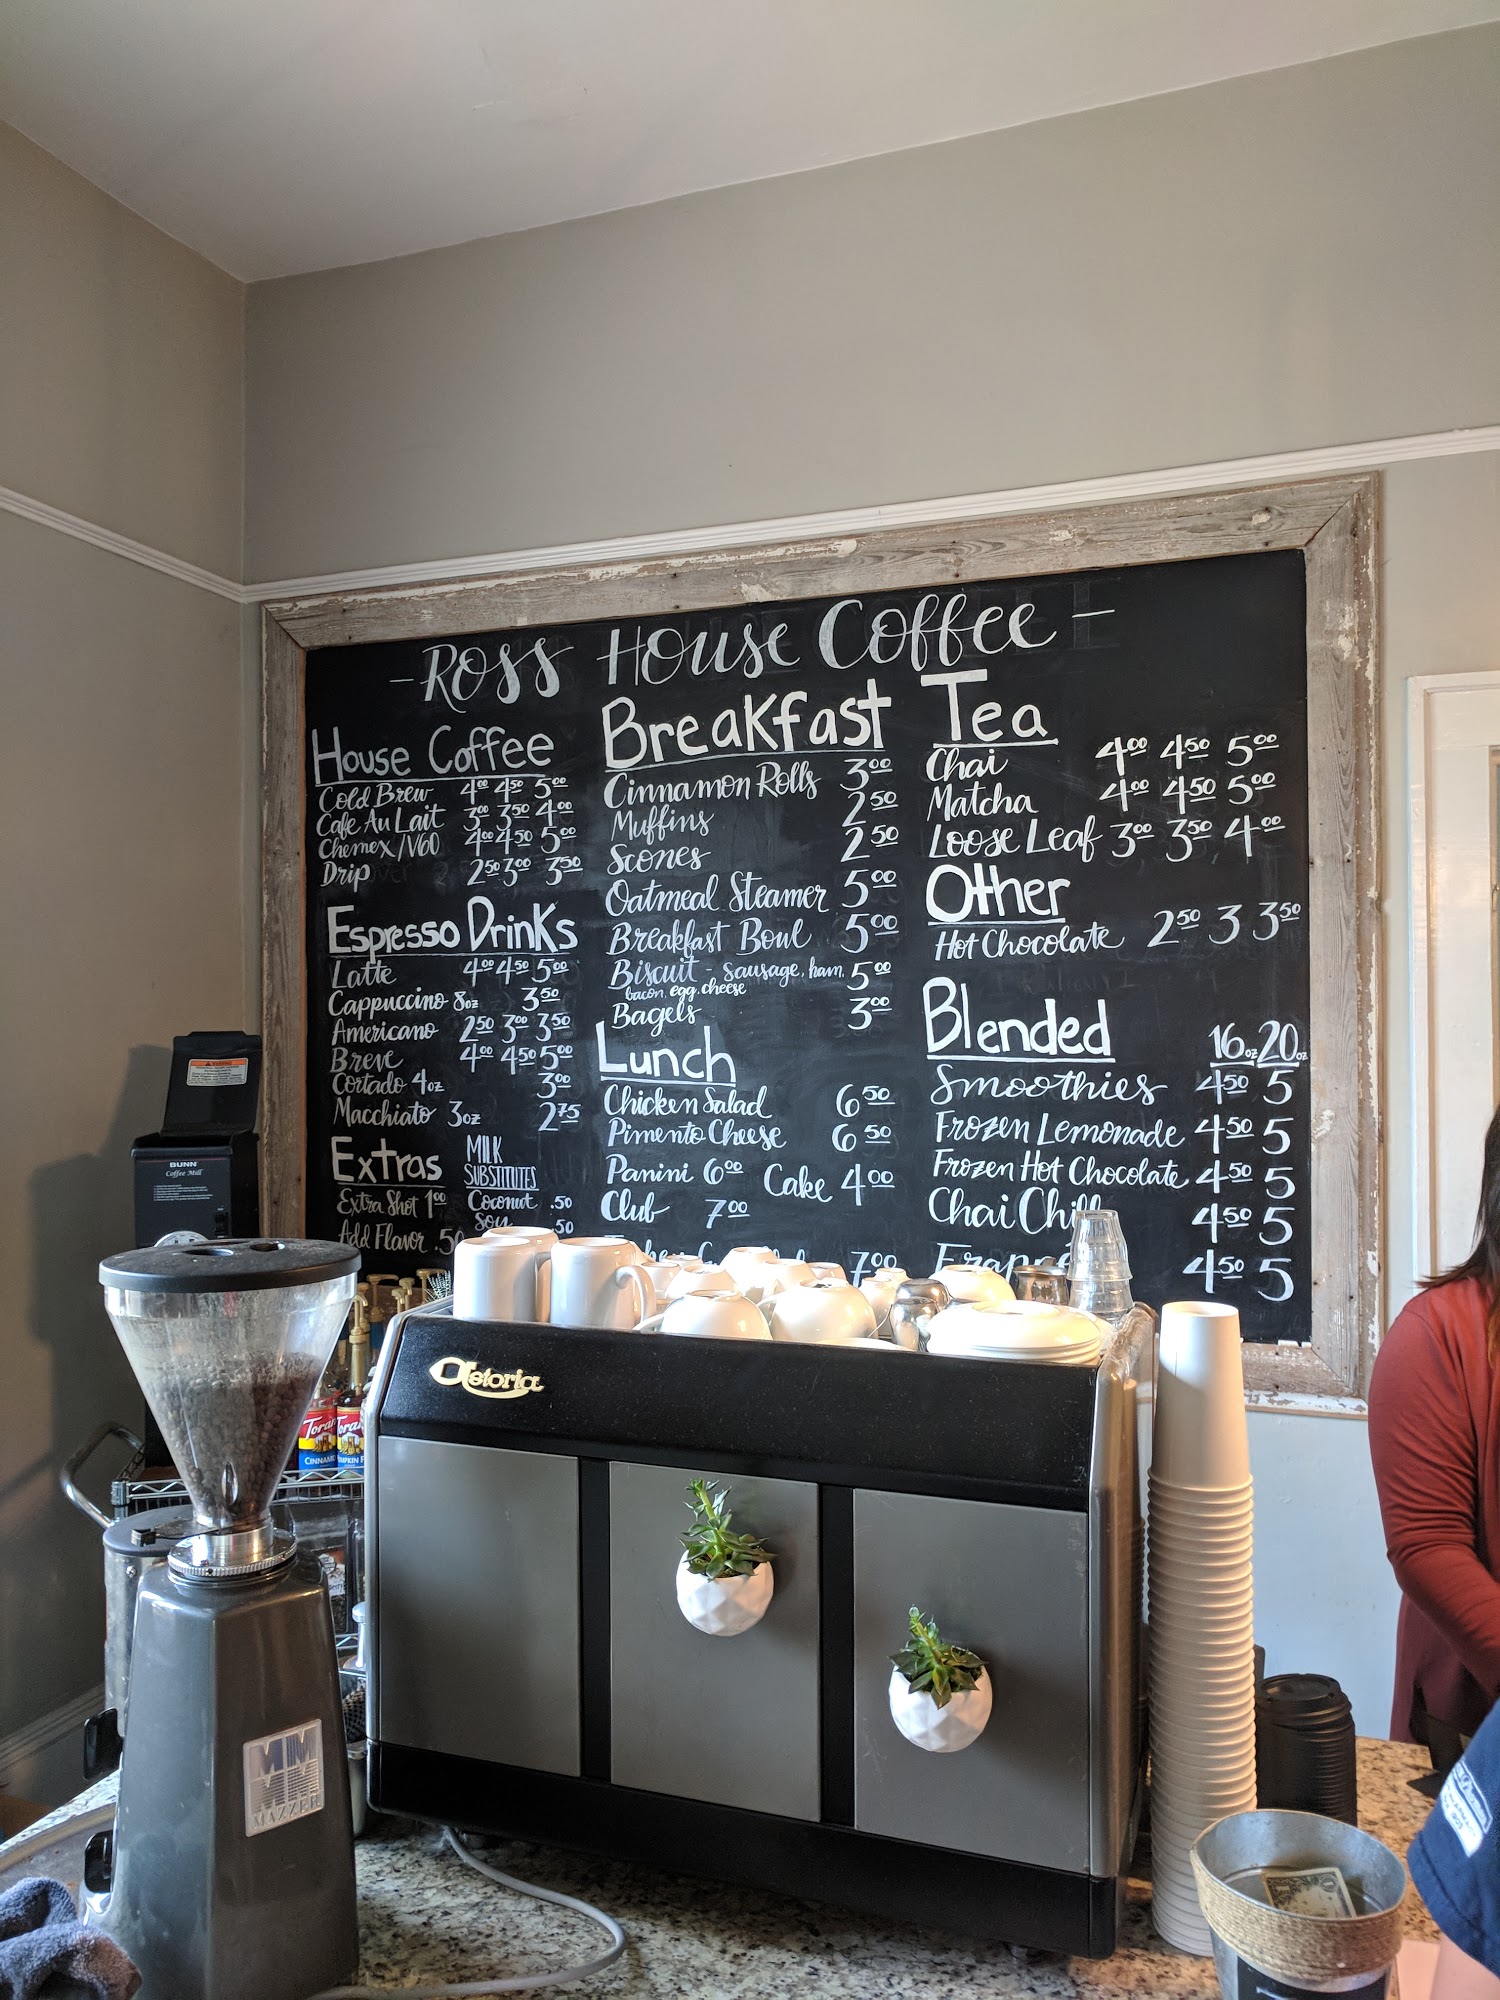 - Ross House Coffee -
House Coffee
Cold Brew 400 450 500
Cafe Au Lait 300 350 400
Chemex/V60 400 450 500
Drip 250 300 350
Espresso Drinks
Latte 400 450 500
Cappuccino 8oz 350
Americano 250 300 350
Breve 400 450 500
Cortado 4oz 300
Macchiato 3oz 275
Extras
Extra Shot 100
Add Flavor .50
MILK
SUBSTITUTES
Coconut .50
Soy .50
Breakfast
Cinnamon Rolls 300
Muffins 250
Scones 250
Oatmeal Steamer 500
Breakfast Bowl 500
Biscuit - sausage, ham, 500
bacon, egg, cheese
Bagels 300
Lunch
Chicken Salad 650
Pimento Cheese 650
Panini 600 Cake 400
Club 700
700
Tea
Chai 400 450 500
Matcha 400 450 500
Loose Leaf 300 350 400
Other
Hot Chocolate 250 3 350
Blended 16oz 20oz
Smoothies 450 5
Frozen Lemonade 450 5
Frozen Hot Chocolate 450 5
Chai Chill 450 5
Frappe 450 5
BUNN
Coffee Mill
Astoria
Torani
CINNAMON
MAZZER